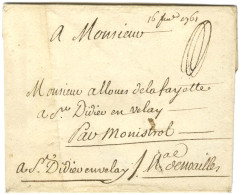 16 fevr 1761
A Monsieur
Monsieur allouës de la fayette
a St Didier en velay
Par Monistrol
a St Didier en velay